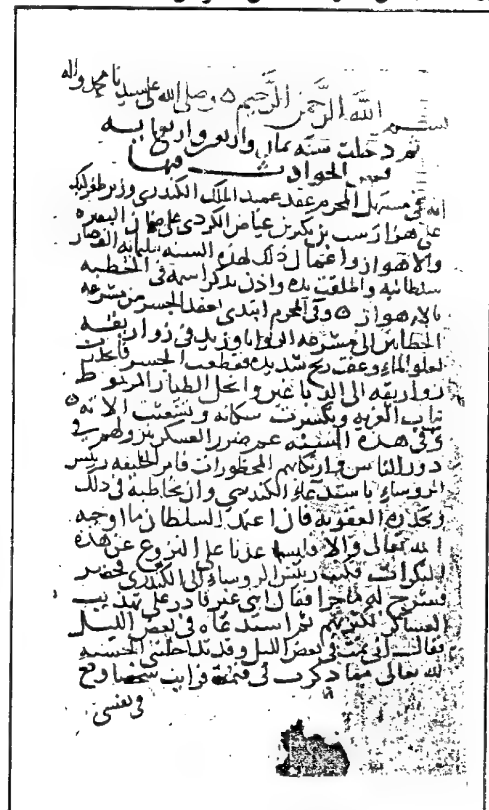 بسم الله الرحمن الرحيم ه وصلى الله على سيدنا محمد واله
ثم دخلت سنه ثمان واربعين واربعمايه
فمن الحوادث فيها
انه فى مستهل المحرم عقد عميد الملك الكندرى وزير طغرلبك
على هزارسب بن بنكير بن عياض الكردى على ضمان البصره
والاهواز واعمال ذلك لهذه السنه بثلثمايه الف دينار
سلطانيه واطلقت يده واذن بذكر اسمه فى الخطبه
بالاهواز ه وفى المحرم ابتدى بعقد الجسر من مشرعه
الحطابين الى مشرعه الروايا وزيد فى زواريقه
لعلو الماء وعقب ريح شديده فقطعت الجسر فانحدرت
زواريقه الى الدباغين وانحل الطيار المربوط
بباب الغربه وتكسرت سكانه وتشعبت الاته ه
وفى هذه السنه عم ضرر العسكر بنزولهم فى
دور الناس وارتكابهم المحظورات فامر الخليفه رئيس
الروساء باستدعاء الكندرى وان يخاطبه فى ذلك
ويحذره العقوبه فان اعتمد السلطان ما اوجبه
الله تعالى والا فليساعدنا على النزوح عن هذه
المنكرات فكتب رئيس الروساء الى الكندرى فحضر
فشرح له ما جرا فقال انى غير قادر على تهذيب
العساكر لكثرتهم ثم استدعاه فى بعض الليل
فقال انى نمت فى بعض الليل وقد تداخلتنى الخشيه
لله تعالى مما ذكرت فى فنمت فرايت شخصا وقع
فى نفسى